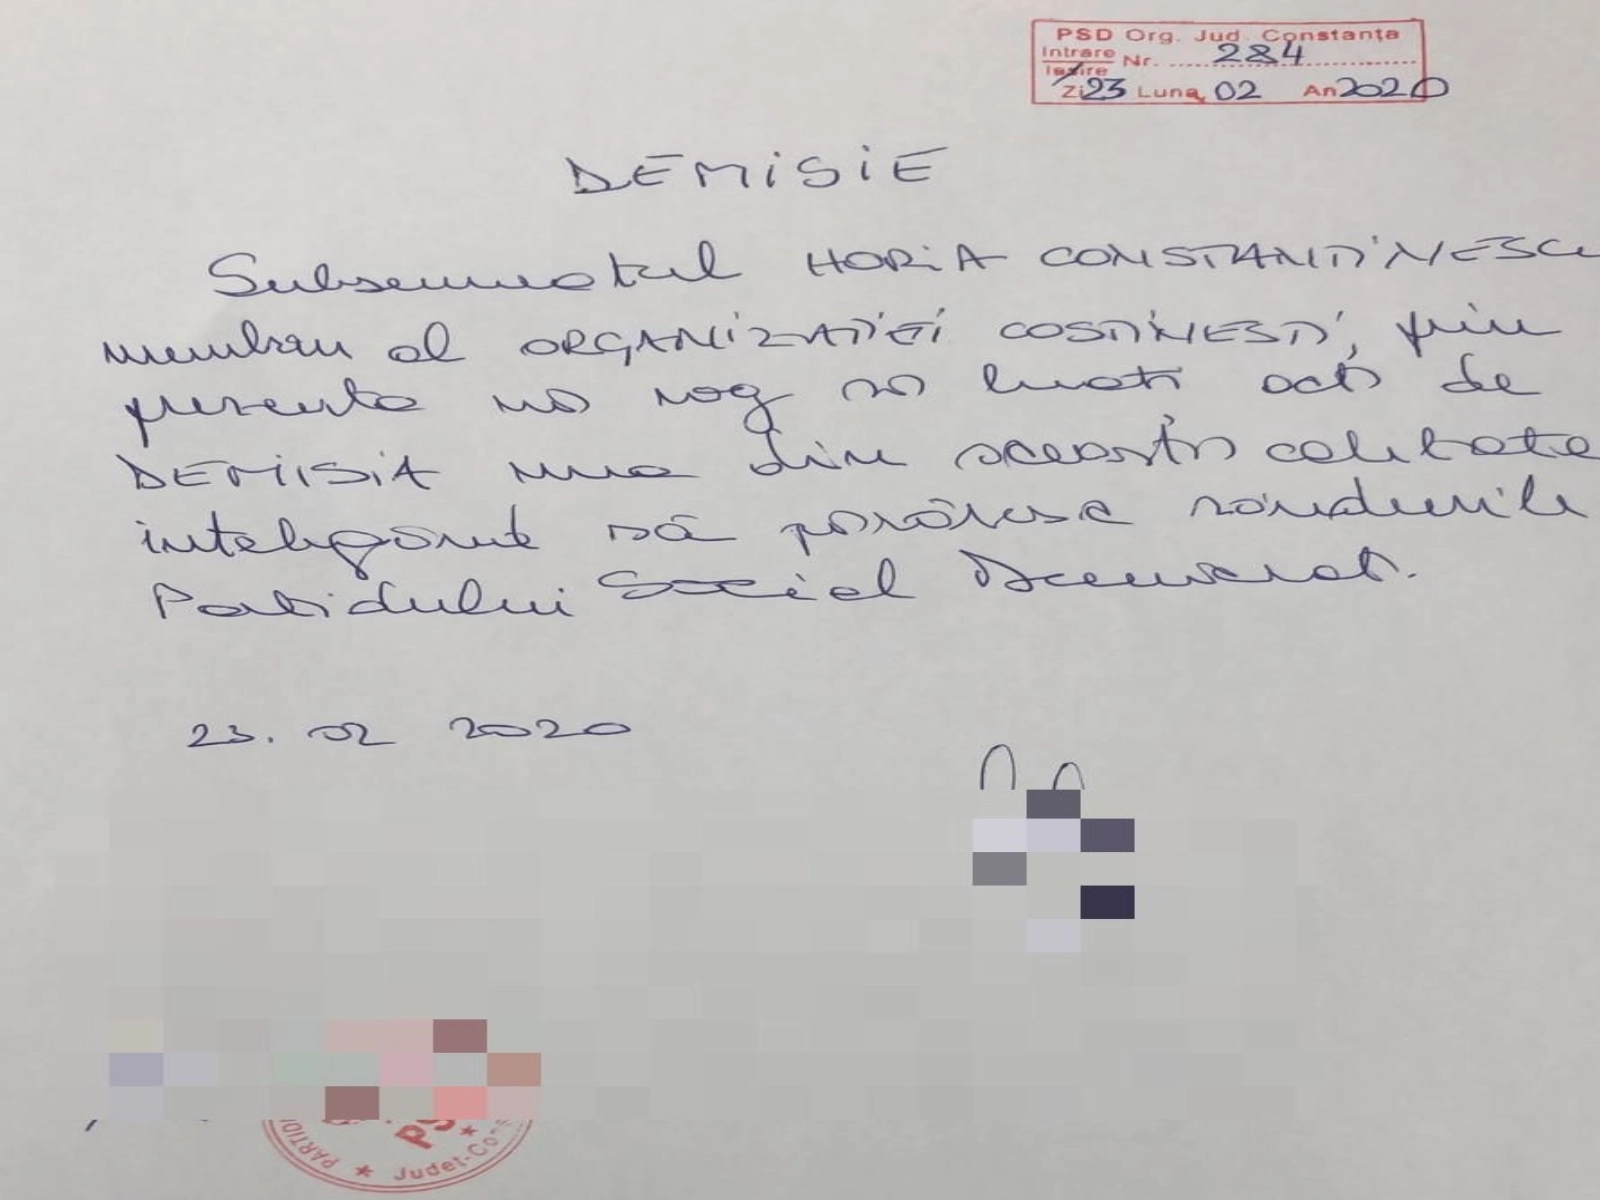 PSD Org. Jud. Constanța
Intrare
Ieșire Nr. 284
Zi 23 Luna 02 An 2020
DEMISIE
Subsemnatul HORIA CONSTANTINESCU
membru al ORGANIZAȚIEI COSTINEȘTI, prin
prezenta vă rog să luați act de
DEMISIA mea din această calitate
înțelegând să părăsesc rândurile
Partidului Social Democrat.
23. 02 2020
PARTID
PS
★ Județ-Cons ★